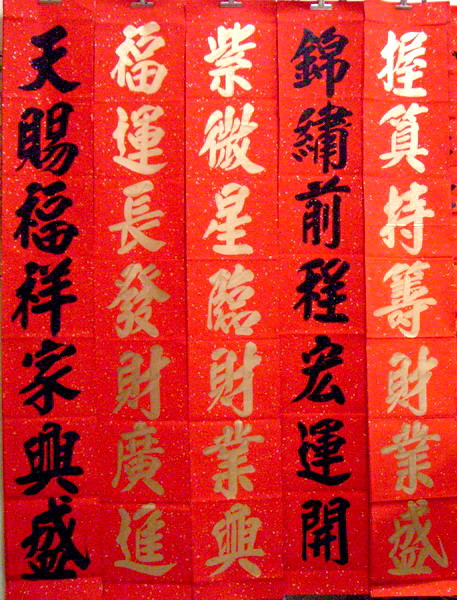 握算持籌財業盛
錦繡前程宏運開
紫微星臨財業興
福運長發財廣進
天賜福祥家興盛